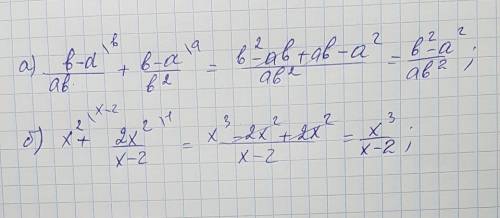 а) (b-a)/(ab) \b + (b-a)/(b²) \a = (b²-ab+ab-a²)/(ab²) = (b²-a²)/(ab²);
б) x² \x-2 + (2x²)/(x-2) \1 = (x³-2x²+2x²)/(x-2) = x³/(x-2);